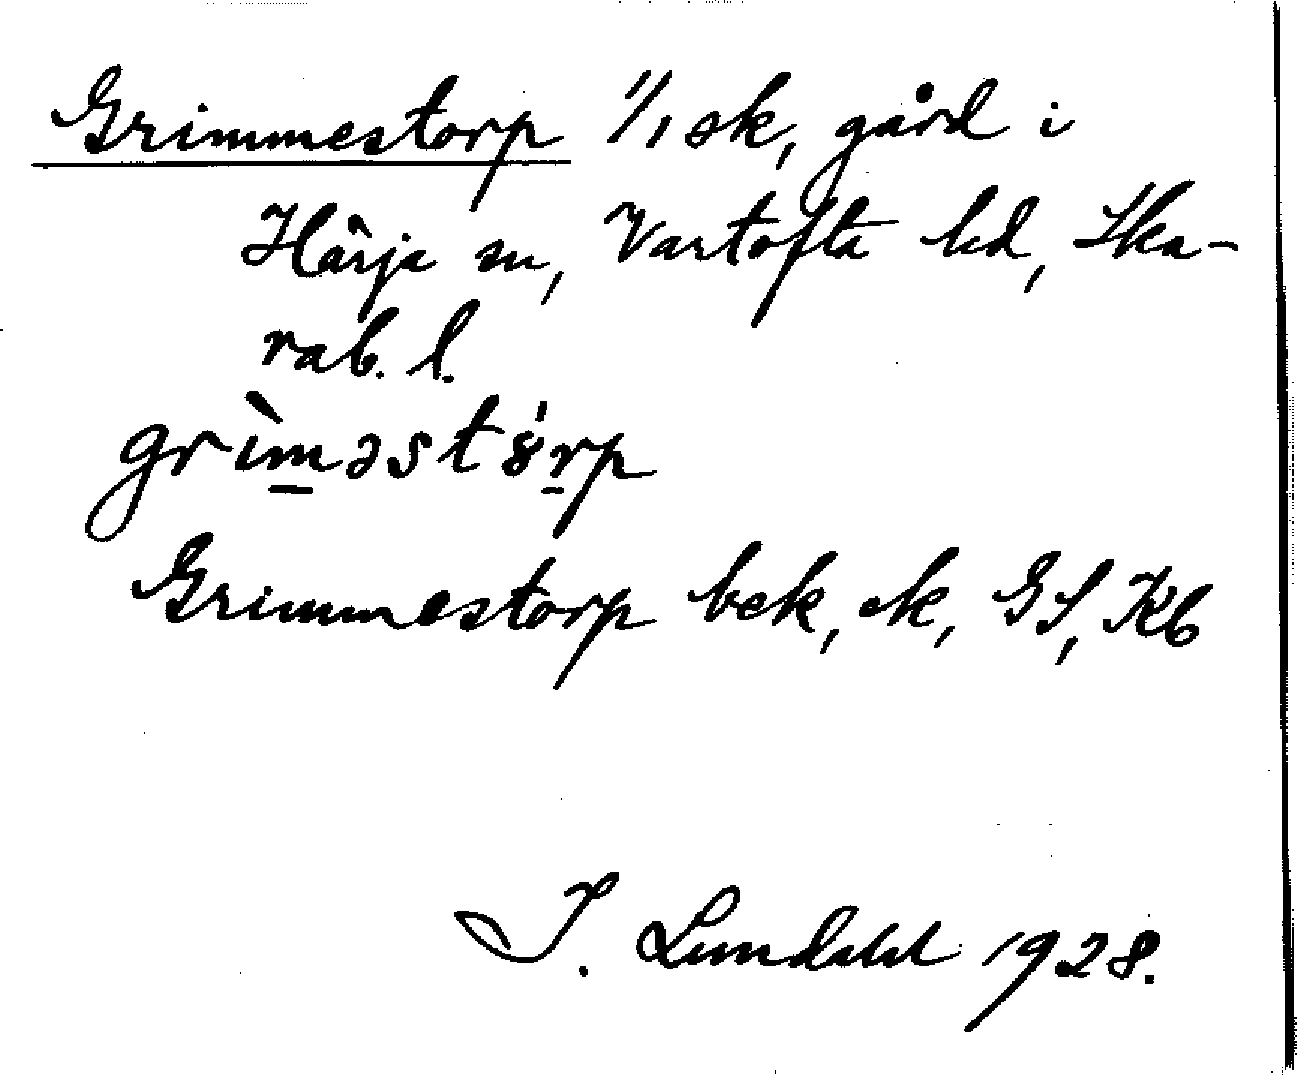 Grimmestorp 1/1 sk, gård i
Härja sn, Vartofta hd, Ska-
rab. l.
grìməst8̍rp
Grimmestorp bek, ek, GS, Kb
I. Lundahl 1928.